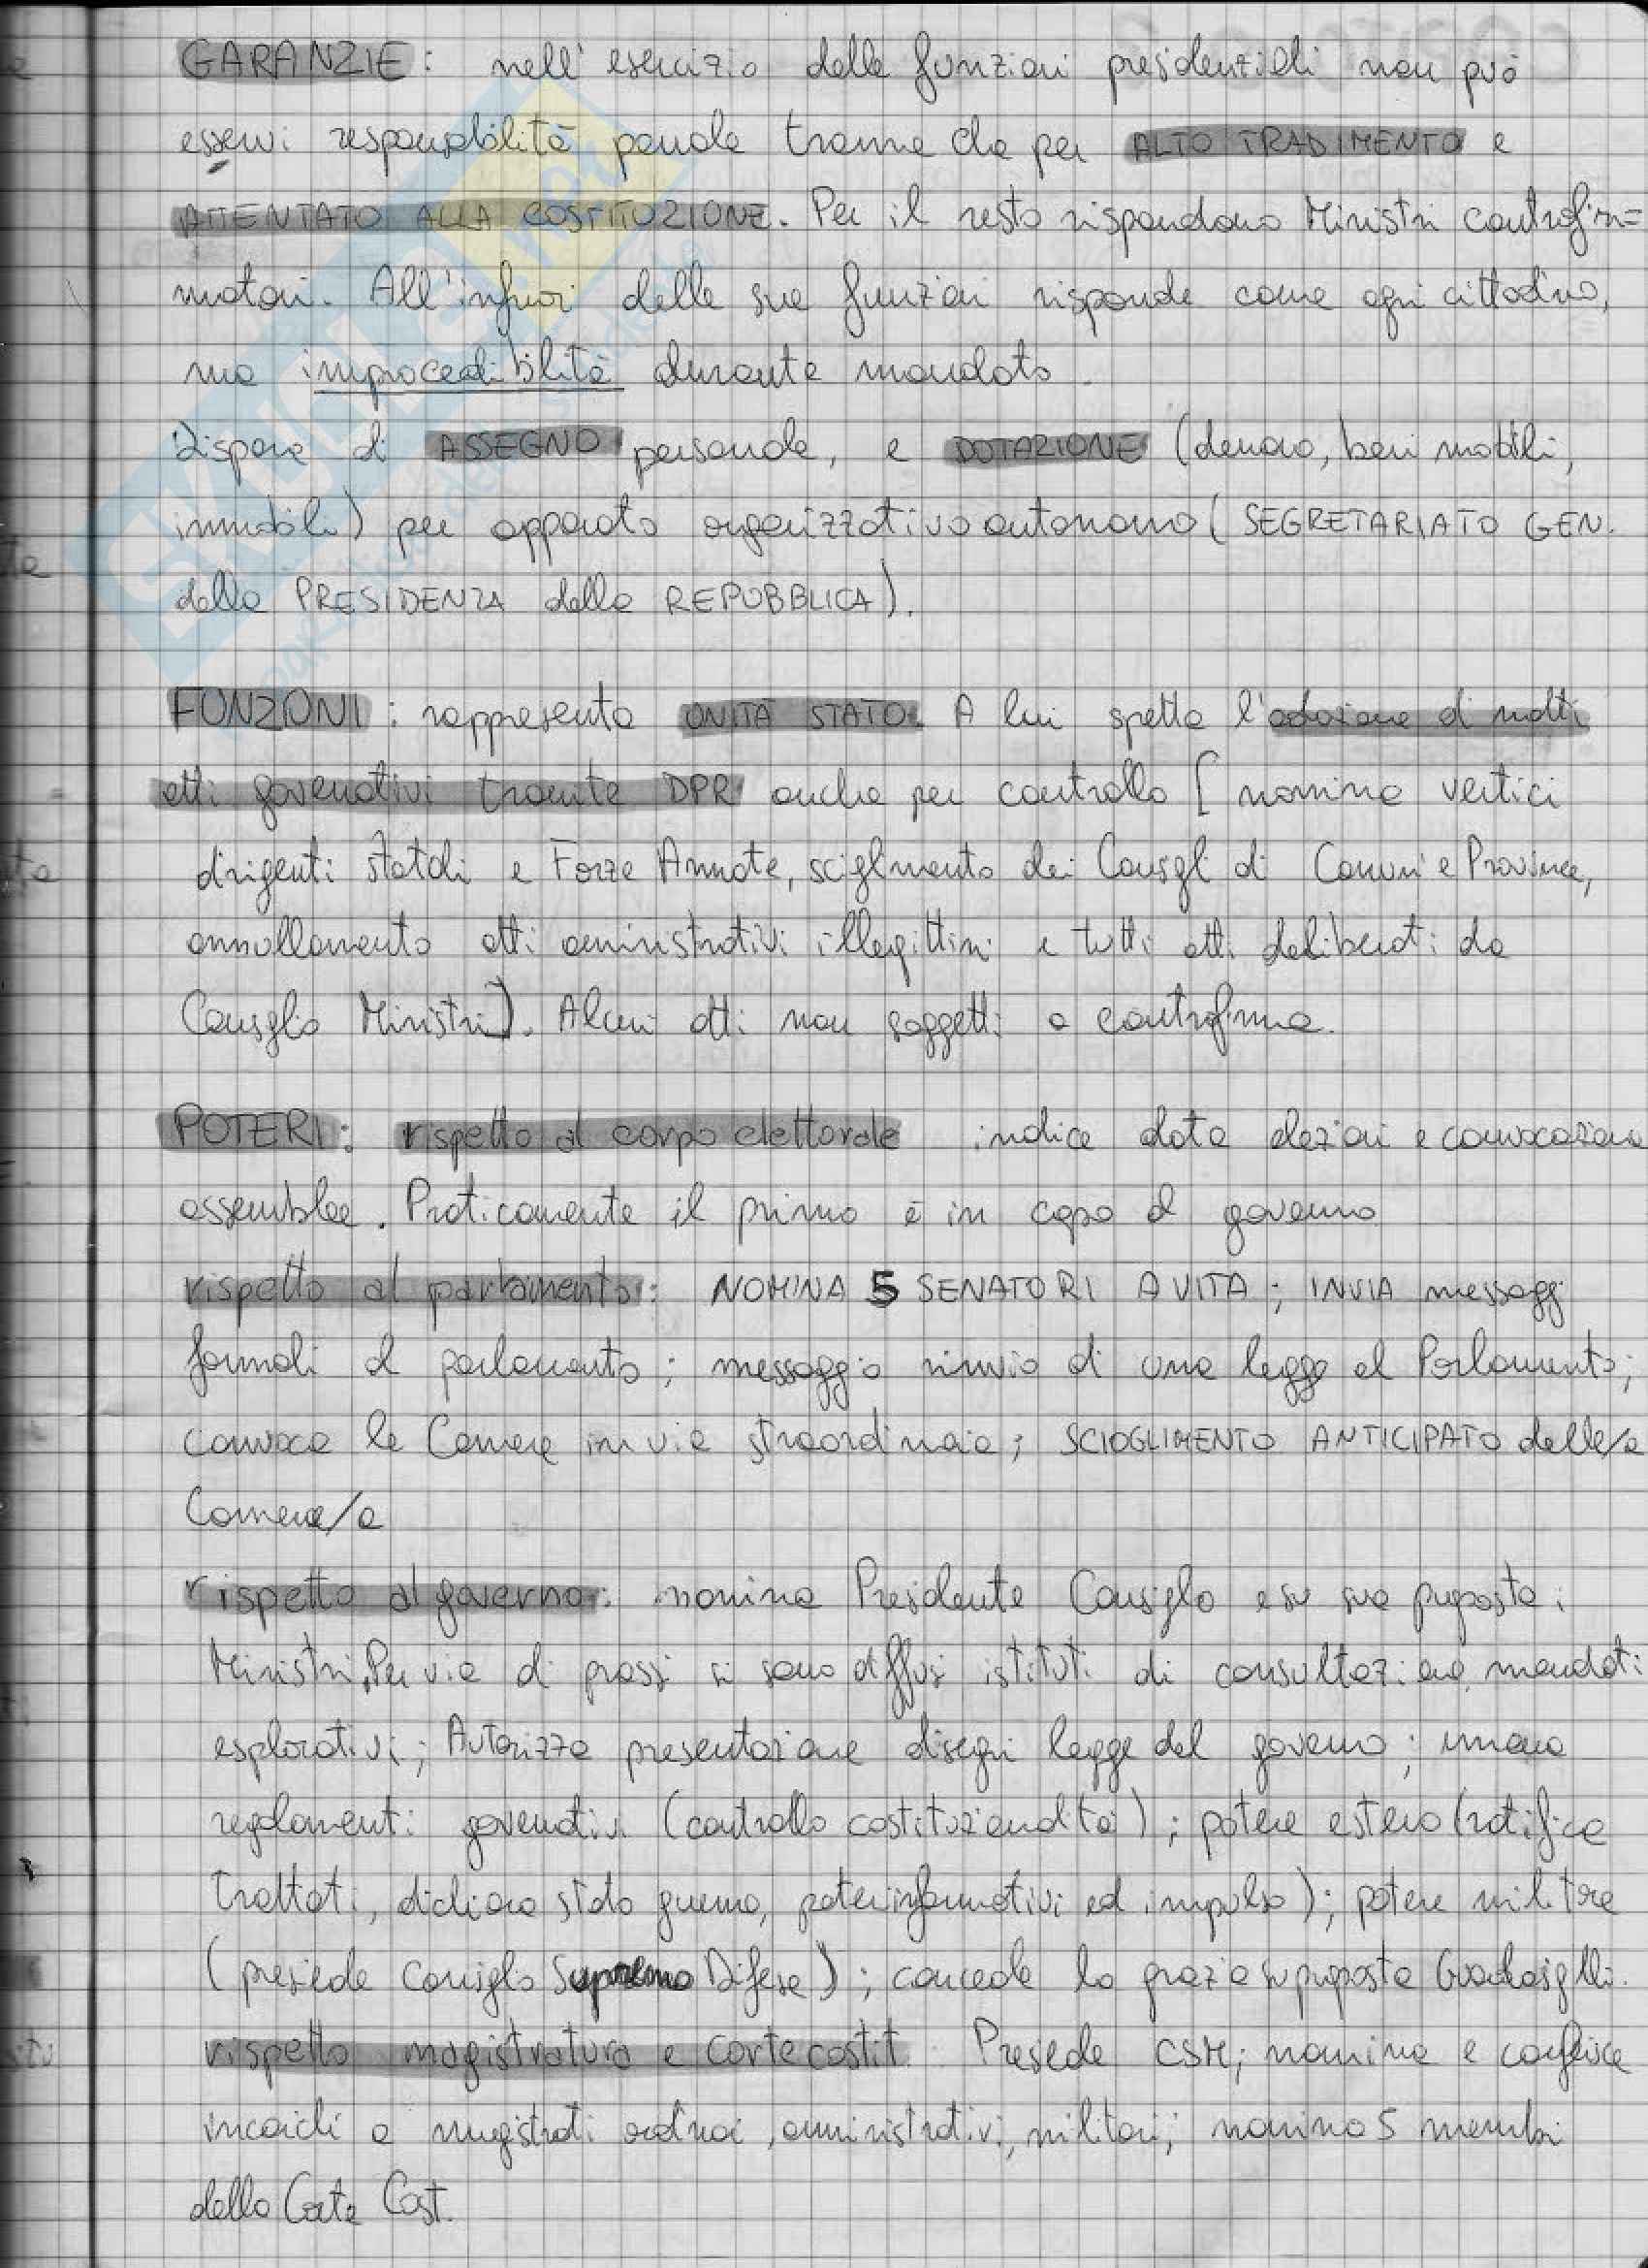 GARANZIE: nell'esercizio delle funzioni presidenziali non può
esservi responsabilità penale tranne che per ALTO TRADIMENTO e
ATTENTATO ALLA COSTITUZIONE. Per il resto rispondono Ministri controfir=
matari. All'infuori delle sue funzioni risponde come ogni cittadino,
ma improcedibilità durante mandato.
Dispone di ASSEGNO personale, e DOTAZIONE (denaro, beni mobili,
immobili) per apparato organizzativo autonomo (SEGRETARIATO GEN.
della PRESIDENZA della REPUBBLICA).
FUNZIONI: rappresenta UNITÀ STATO. A lui spetta l'adozione di molti
atti governativi tramite DPR anche per controllo [nomina vertici
dirigenti statali e Forze Armate, sciglimento dei Consigl di Comuni e Province,
annullamento atti amministrativi illegittimi e tutti atti deliberati da
Consiglio Ministri]. Alcuni atti non soggetti a controfirma.
POTERI: rispetto al corpo elettorale indice data elezioni e convocazione
assemblee. Praticamente il primo è in capo al governo
rispetto al parlamento: NOMINA 5 SENATORI A VITA; INVIA messaggi
formali al parlamento; messaggio rinvio di una legge al Parlamento;
convoca le Camere in via straordinaria; SCIOGLIMENTO ANTICIPATO delle/a
Camere/a
rispetto al governo: nomina Presidente Consiglio e su sua proposta i
Ministri. Per via di prassi si sono diffusi istituti di consultazione, mandati
esplorativi; Autorizza presentazione disegni legge del governo; emana
regolamenti governativi (controllo costituzionalità); potere estero (ratifica
trattati, dichiara stato guerra, poteri informativi ed impulso); potere militare
(presiede Consiglio Supremo Difesa); concede la grazia su proposta Guardasigilli.
rispetto magistratura e corte costit Presiede CSM; nomina e conferisce
incarichi a magistrati ordinari, amministrativi, militari; nomina 5 membri
della Corte Cost.
SKUOLA.net